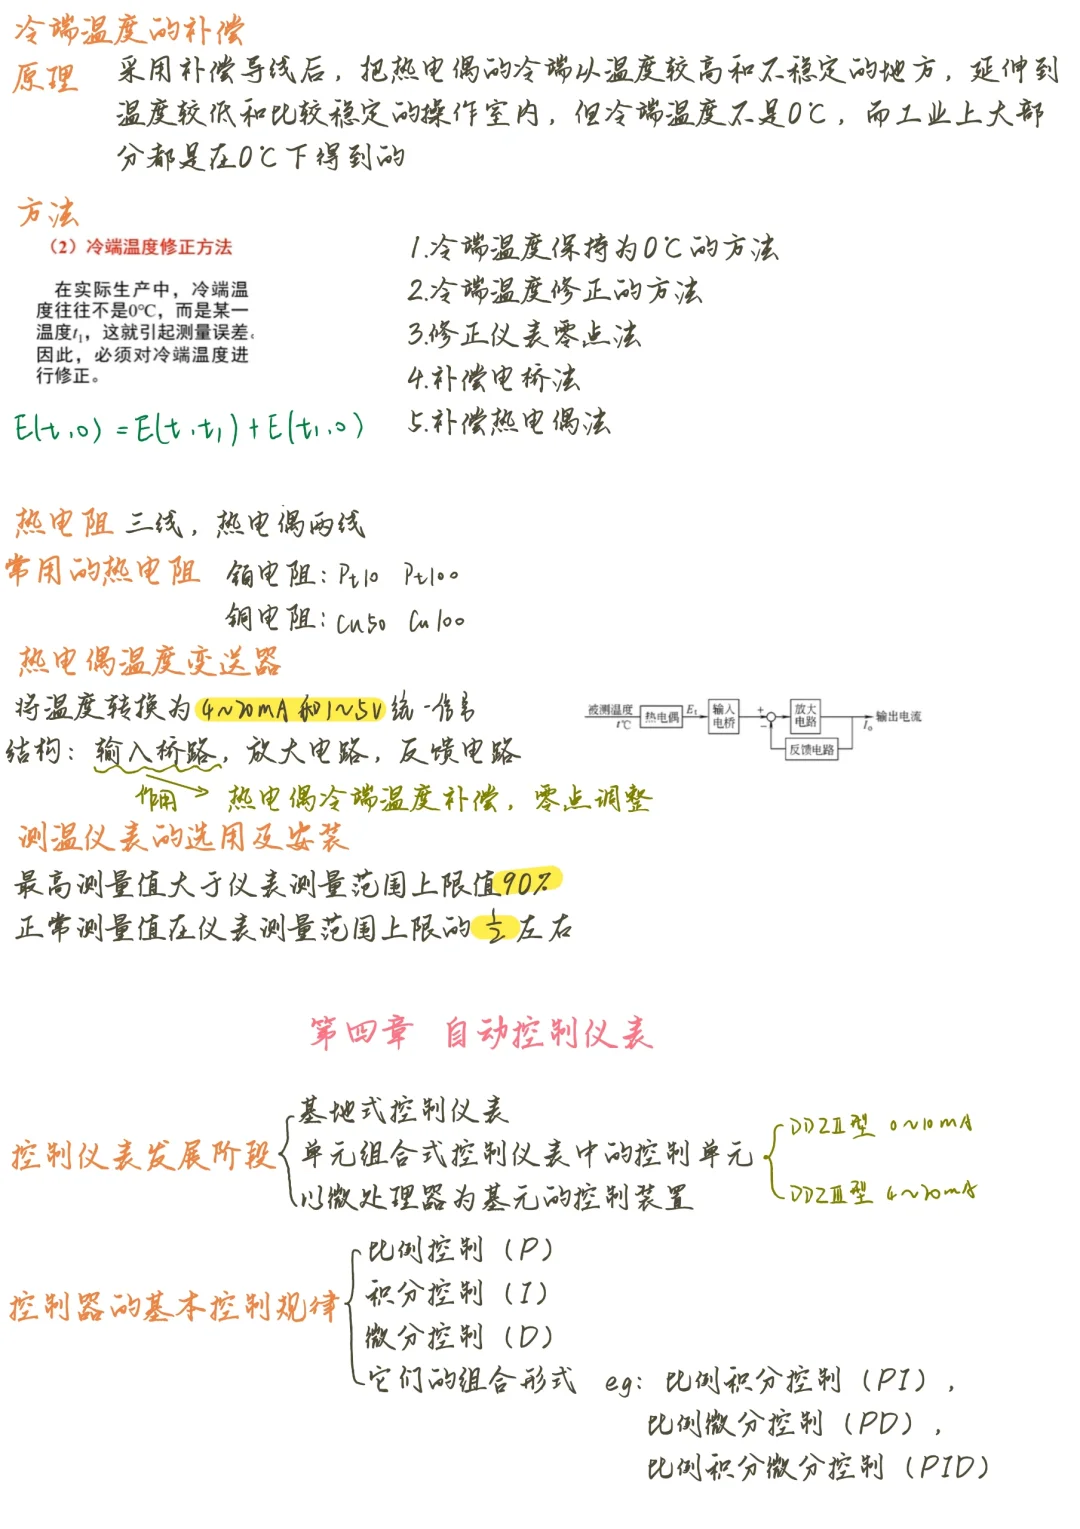 冷端温度的补偿
原理 采用补偿导线后，把热电偶的冷端从温度较高和不稳定的地方，延伸到
温度较低和比较稳定的操作室内，但冷端温度不是0℃，而工业上大部
分都是在0℃下得到的
方法
（2）冷端温度修正方法
在实际生产中，冷端温
度往往不是0℃，而是某一
温度t₁，这就引起测量误差。
因此，必须对冷端温度进
行修正。
E(t,0)=E(t,t₁)+E(t₁,0)
1.冷端温度保持为0℃的方法
2.冷端温度修正的方法
3.修正仪表零点法
4.补偿电桥法
5.补偿热电偶法
热电阻 三线，热电偶两线
常用的热电阻 铂电阻：Pt10 Pt100
铜电阻：Cu50 Cu100
热电偶温度变送器
将温度转换为4~20mA和1~5V统一信号
结构：输入桥路，放大电路，反馈电路
作用 热电偶冷端温度补偿，零点调整
被测温度 t℃ 热电偶 Et 输入电桥 + - 放大电路 I₀ 输出电流
反馈电路
测温仪表的选用及安装
最高测量值大于仪表测量范围上限值90%
正常测量值在仪表测量范围上限的1/2左右
第四章 自动控制仪表
控制仪表发展阶段
基地式控制仪表
单元组合式控制仪表中的控制单元
DDZⅡ型 0~10mA
DDZⅢ型 4~20mA
以微处理器为基元的控制装置
控制器的基本控制规律
比例控制（P）
积分控制（I）
微分控制（D）
它们的组合形式 eg：比例积分控制（PI），
比例微分控制（PD），
比例积分微分控制（PID）